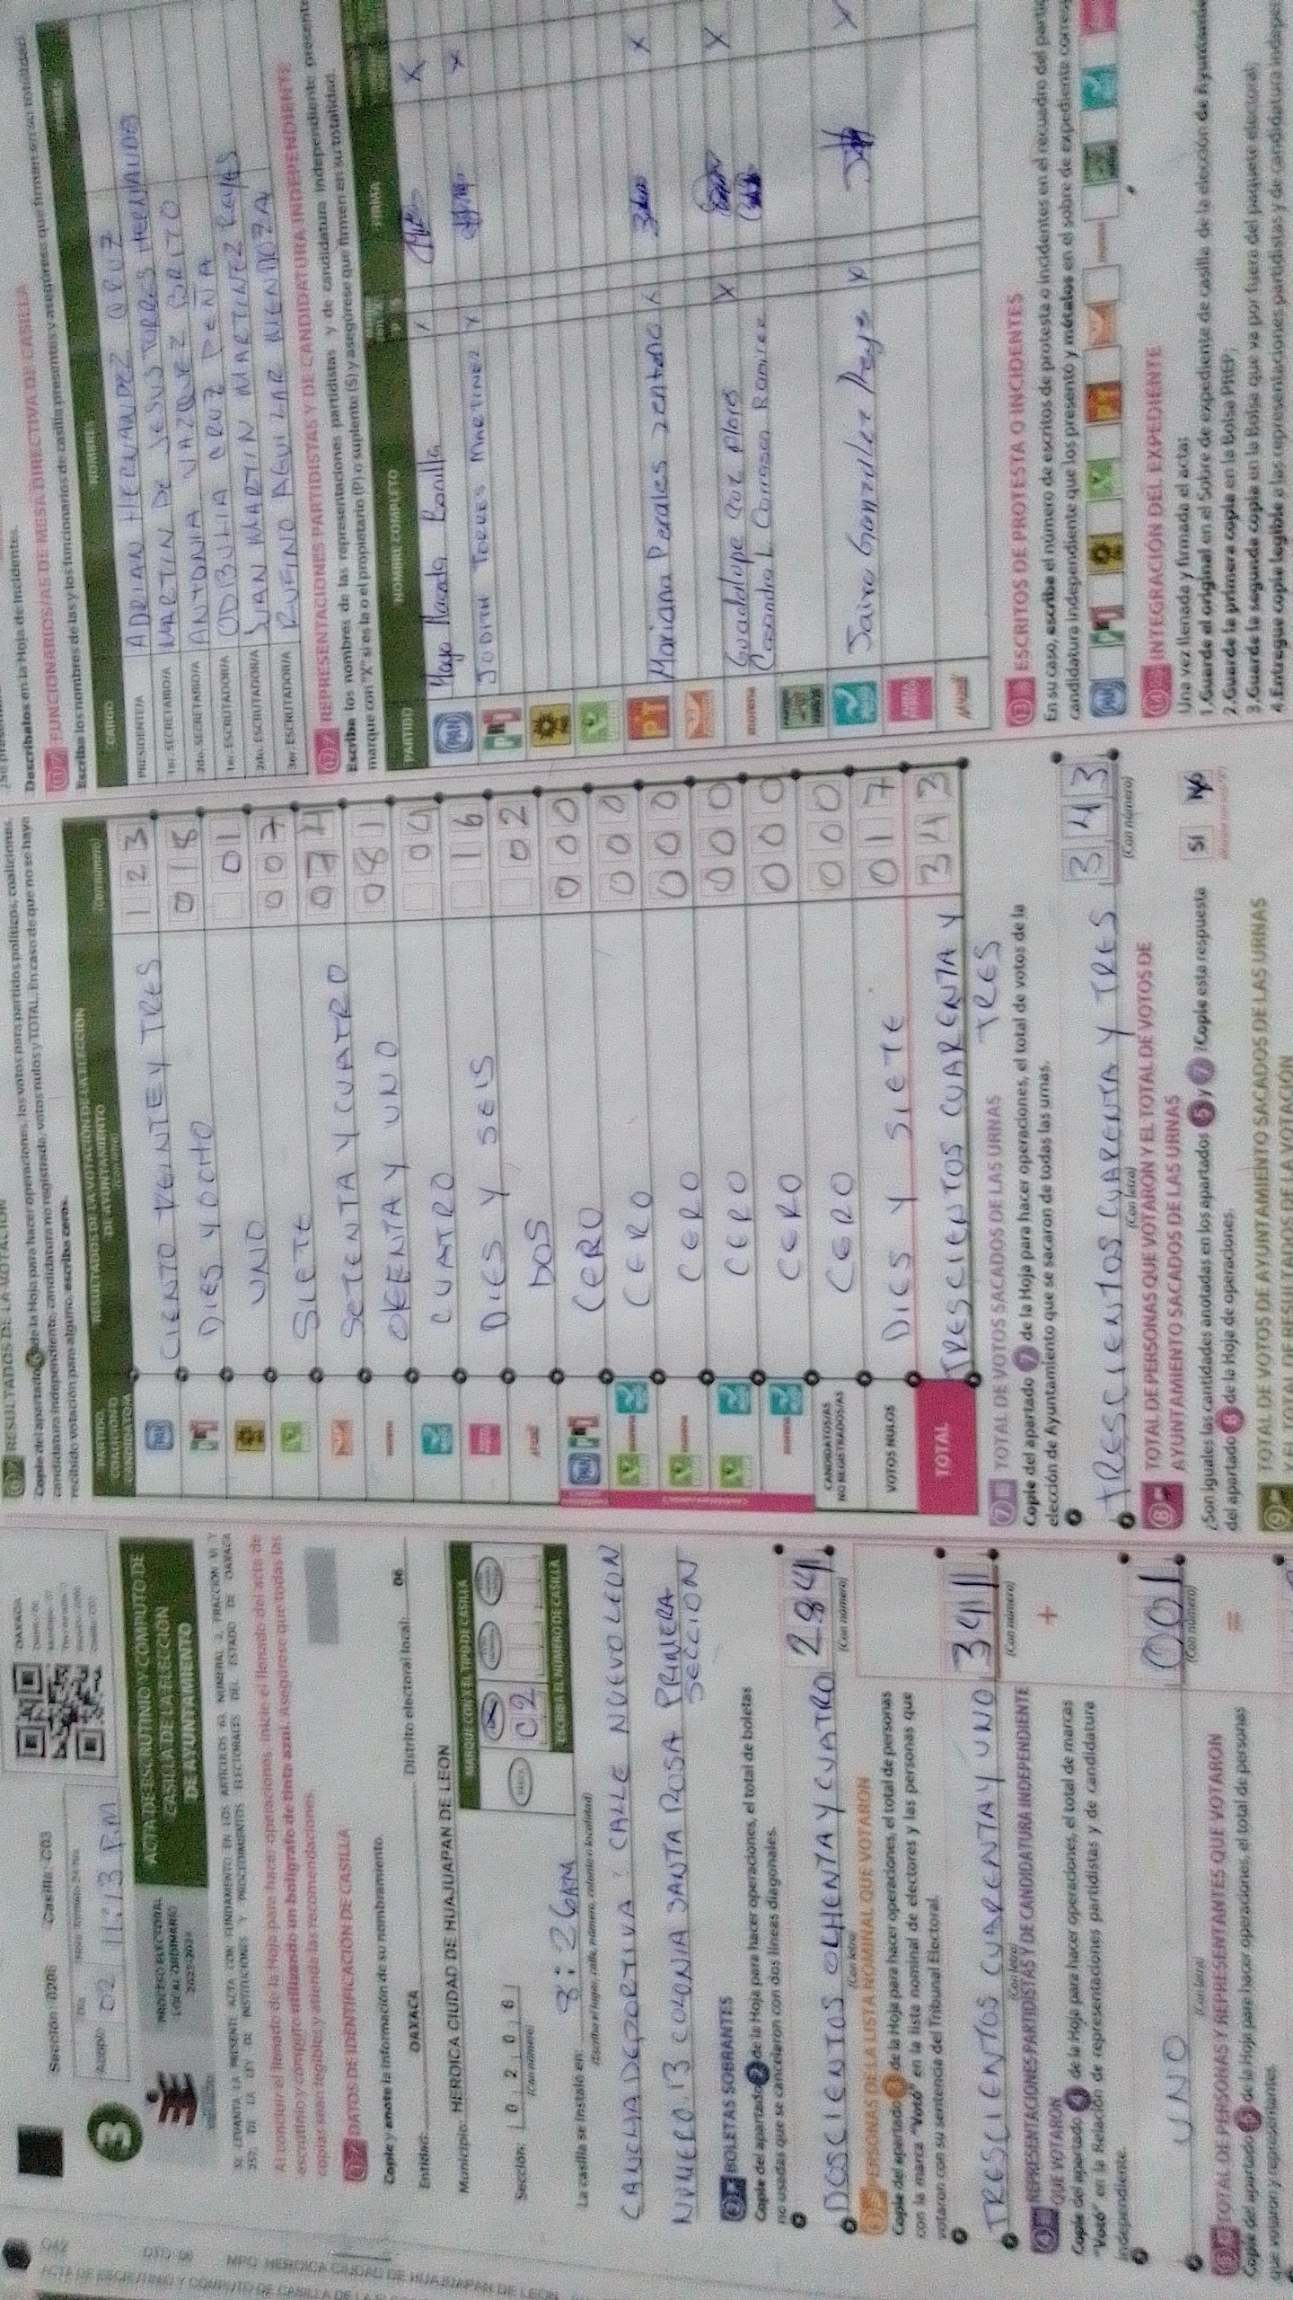 Sección: 0206 Casilla: C03
OAXACA
Acopio 02 11:13 P.M
3
PROCESO ELECTORAL
LOCAL ORDINARIO
ACTA DE ESCRUTINIO Y CÓMPUTO DE
CASILLA DE LA ELECCIÓN
DE AYUNTAMIENTO
Al concluir el llenado de la Hoja para hacer operaciones, inicie el llenado del acta de
escrutinio y cómputo utilizando un bolígrafo de tinta azul. Asegúrese que todas las
copias sean legibles y atienda las recomendaciones.
1 DATOS DE IDENTIFICACIÓN DE CASILLA
Copie y anote la información de su nombramiento.
Entidad: OAXACA Distrito electoral local: 06
Municipio: HEROICA CIUDAD DE HUAJUAPAN DE LEON
MARQUE CON X EL TIPO DE CASILLA
Sección: 0 2 0 6
(Con número)
C2
ESCRIBA EL NÚMERO DE CASILLA
La casilla se instaló en: 8:26AM
(Escriba el lugar, calle, número, colonia o localidad)
CANCHA DEPORTIVA: CALLE NUEVO LEON
NUMERO.13 COLONIA SANTA ROSA PRIMERA
SECCION
2 BOLETAS SOBRANTES
Copie del apartado 2 de la Hoja para hacer operaciones, el total de boletas
no usadas que se cancelaron con dos líneas diagonales.
DOSCIENTOS OCHENTA Y CUATRO 284
(Con letra) (Con número)
3 PERSONAS DE LA LISTA NOMINAL QUE VOTARON
Copie del apartado 3 de la Hoja para hacer operaciones, el total de personas
con la marca "Votó" en la lista nominal de electores y las personas que
votaron con su sentencia del Tribunal Electoral.
TRESCIENTOS CUARENTA Y UNO 341
(Con letra) (Con número)
4 REPRESENTACIONES PARTIDISTAS Y DE CANDIDATURA INDEPENDIENTE
QUE VOTARON
+
Copie del apartado 4 de la Hoja para hacer operaciones, el total de marcas
"Votó" en la Relación de representaciones partidistas y de candidatura
independiente.
UNO 001
(Con letra) (Con número)
5 TOTAL DE PERSONAS Y REPRESENTANTES QUE VOTARON
=
Copie del apartado 5 de la Hoja para hacer operaciones, el total de personas
que votaron y representantes.
6 RESULTADOS DE LA VOTACIÓN
Copie del apartado 6 de la Hoja para hacer operaciones, los votos para partidos políticos, coaliciones,
candidatura independiente, candidatura no registrada, votos nulos y TOTAL. En caso de que no se haya
recibido votación para alguno, escriba ceros.
PARTIDO, COALICIÓN O CANDIDATO/A
RESULTADOS DE LA VOTACIÓN DE LA ELECCIÓN
DE AYUNTAMIENTO
(Con letra) (Con número)
PAN CIENTO VEINTE Y TRES 123
PRI DIES Y OCHO 018
UNO 01
SIETE 007
SETENTA Y CUATRO 074
morena OCHENTA Y UNO 081
CUATRO 04
DIES Y SEIS 16
DOS 02
PAN PRI CERO 000
CERO 000
CERO 000
CERO 000
CERO 000
CANDIDATOS/AS
NO REGISTRADOS/AS CERO 000
VOTOS NULOS DIES Y SIETE 017
TOTAL TRESCIENTOS CUARENTA Y 343
TRES
7 TOTAL DE VOTOS SACADOS DE LAS URNAS
Copie del apartado 7 de la Hoja para hacer operaciones, el total de votos de la
elección de Ayuntamiento que se sacaron de todas las urnas.
TRESCIENTOS CUARENTA Y TRES 343
(Con letra) (Con número)
8 TOTAL DE PERSONAS QUE VOTARON Y EL TOTAL DE VOTOS DE
AYUNTAMIENTO SACADOS DE LAS URNAS
¿Son iguales las cantidades anotadas en los apartados 5 y 7? Copie esta respuesta
del apartado 8 de la Hoja de operaciones. SI NO
9 TOTAL DE VOTOS DE AYUNTAMIENTO SACADOS DE LAS URNAS
Y EL TOTAL DE RESULTADOS DE LA VOTACIÓN
Descríbalos en la Hoja de Incidentes.
11 FUNCIONARIOS/AS DE MESA DIRECTIVA DE CASILLA
Escriba los nombres de las y los funcionarios de casilla presentes y asegúrese que firmen en su totalidad.
CARGO NOMBRES FIRMAS
PRESIDENTE/A ADRIAN HERNANDEZ CRUZ
1er. SECRETARIO/A MARTIN DE JESUS TORRES HERNANDEZ
2do. SECRETARIO/A ANTONIA VAZQUEZ BRITO
1er. ESCRUTADOR/A ODBULIA CRUZ PEÑA
2do. ESCRUTADOR/A JUAN MARTIN MARTINEZ REYES
3er. ESCRUTADOR/A RUFINO AGUILAR MENDOZA
12 REPRESENTACIONES PARTIDISTAS Y DE CANDIDATURA INDEPENDIENTE
Escriba los nombres de las representaciones partidistas y de candidatura independiente presente
marque con "X" si es la o el propietario (P) o suplente (S) y asegúrese que firmen en su totalidad.
PARTIDO NOMBRE COMPLETO FIRMA
PAN Bonilla X X
PRI JUDITH TORRES MARTINEZ X X
PT Mariana Perales Zenteno X X
morena Guadalupe X X
Cassandra L. Carrasco Ramirez
Jairo Gonzalez Reyes X X
13 ESCRITOS DE PROTESTA O INCIDENTES
En su caso, escriba el número de escritos de protesta o incidentes en el recuadro del parti
candidatura independiente que los presentó y métalos en el sobre de expediente corres
14 INTEGRACIÓN DEL EXPEDIENTE
Una vez llenada y firmada el acta:
1. Guarde el original en el Sobre de expediente de casilla de la elección de Ayuntamie
2. Guarde la primera copia en la Bolsa PREP;
3. Guarde la segunda copia en la Bolsa que va por fuera del paquete electoral;
4. Entregue copia legible a las representaciones partidistas y de candidatura indepe